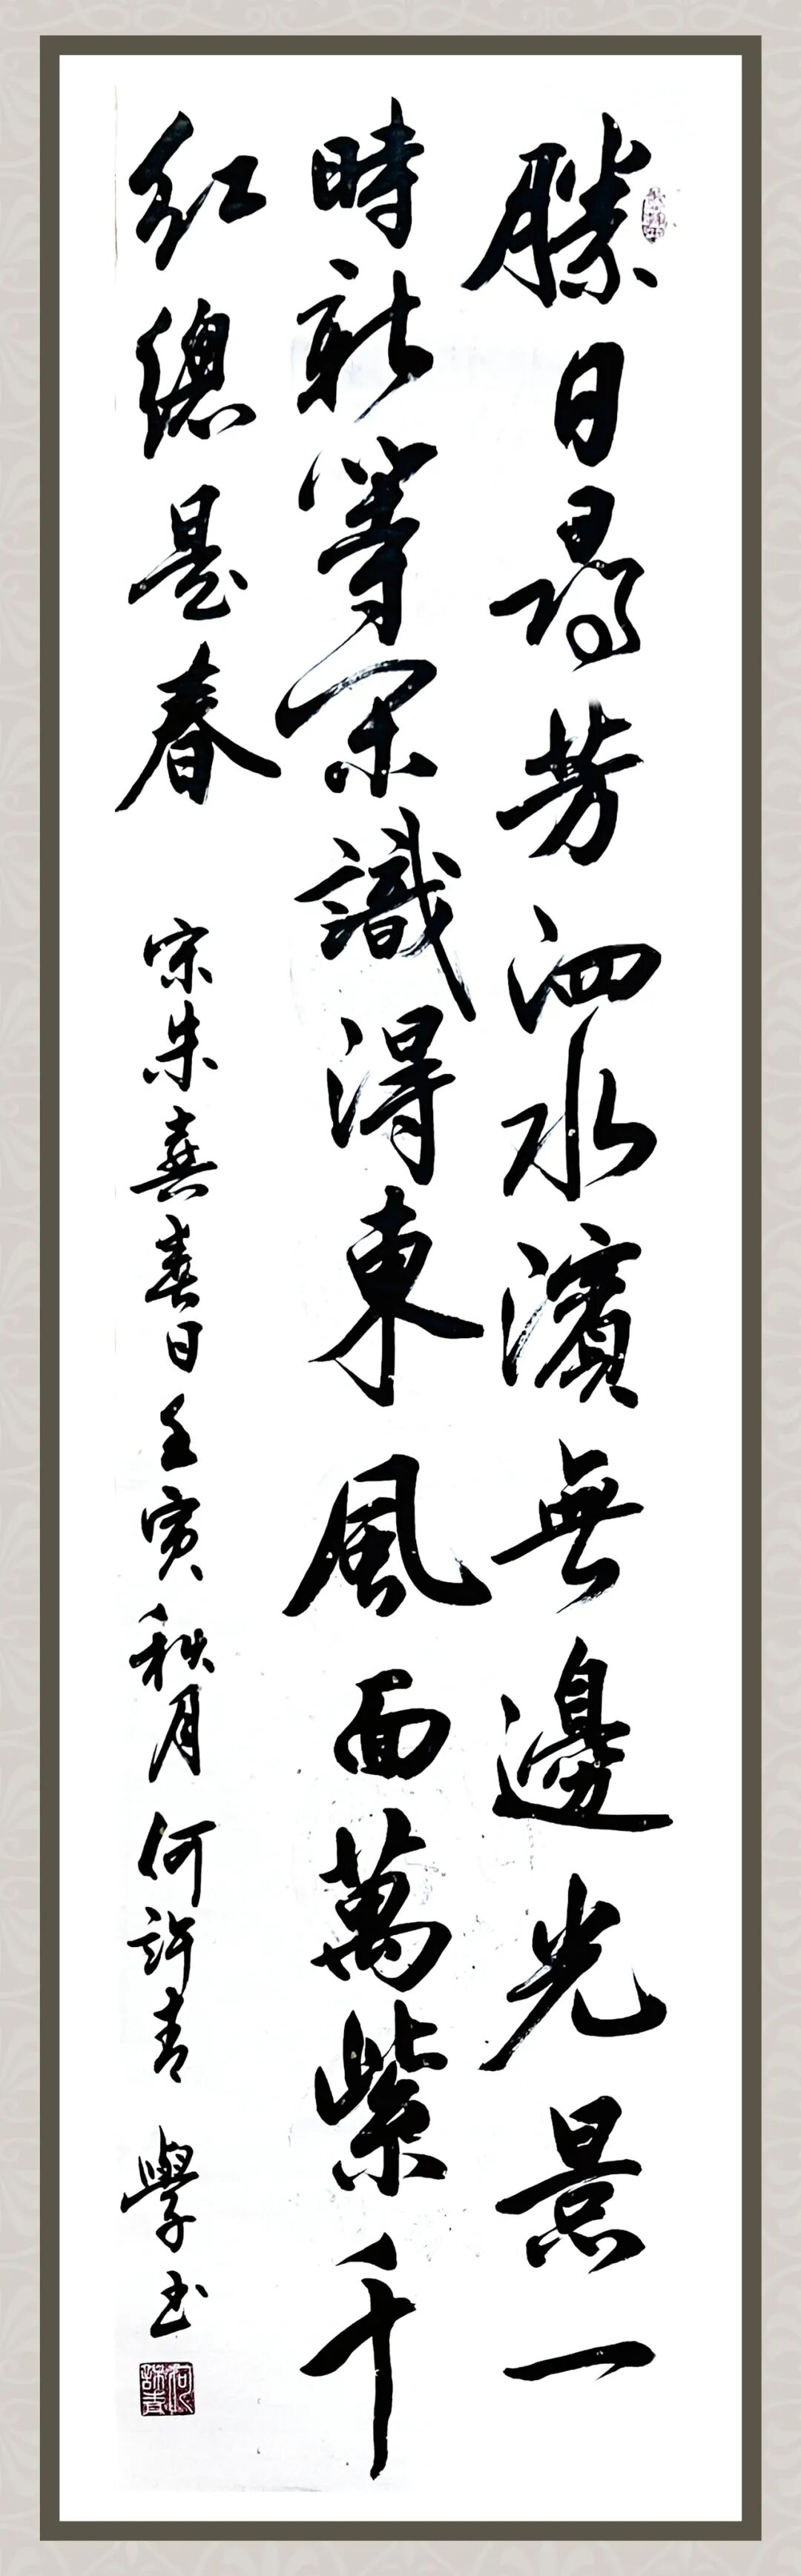 勝日尋芳泗水濱無邊光景一
時新等閑識得東風面萬紫千
紅總是春 宋朱熹春日壬寅秋月何許青學書